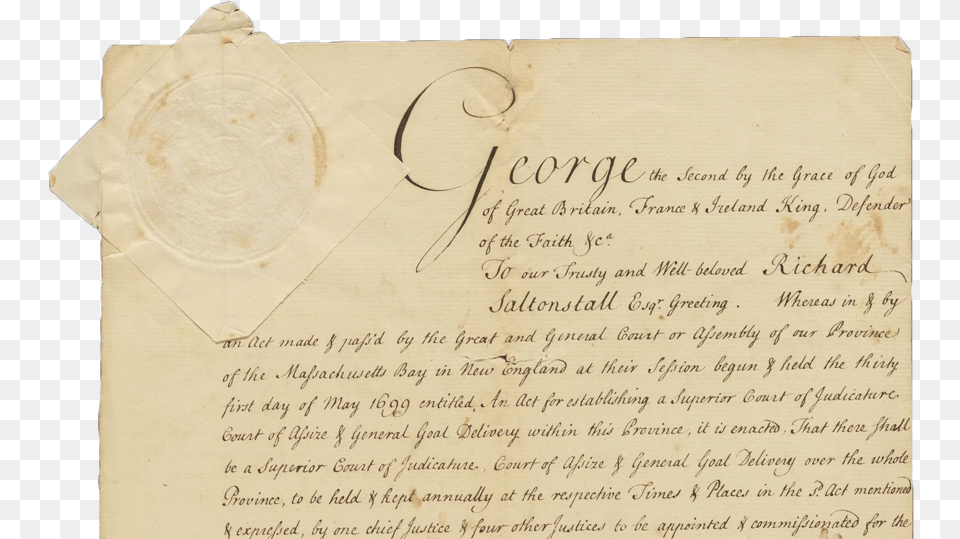 George the Second by the Grace of God
of Great Britain, France & Ireland King, Defender
of the Faith &c.ª
To our Trusty and Well-beloved Richard
Saltonstall Esqr. Greeting. Whereas in & by
an Act made & pass'd by the Great and General Court or Assembly of our Province
of the Massachusetts Bay in New England at their Session begun & held the thirty
first day of May 1699 entitled, An Act for establishing a Superior Court of Judicature
Court of Assize & General Goal Delivery within this Province, it is enacted, That there shall
be a Superior Court of Judicature, Court of Assize & General Goal Delivery over the whole
Province, to be held & kept annually at the respective Times & Places in the sd. Act mentioned
& expressed, by one chief Justice & four other Justices to be appointed & commissionated for the